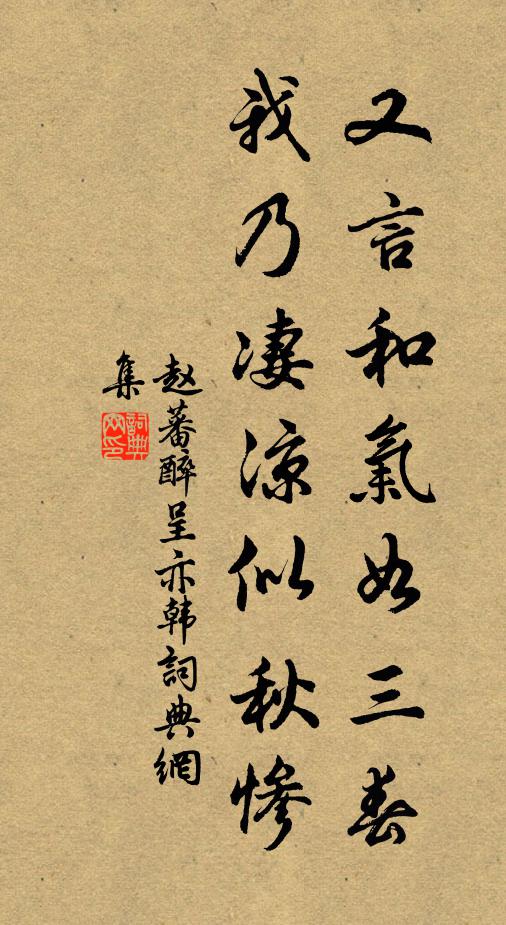 又言和氣如三春
我乃凄涼似秋慘
赵蕃醉呈亦韩詞典網
集
詞典網印